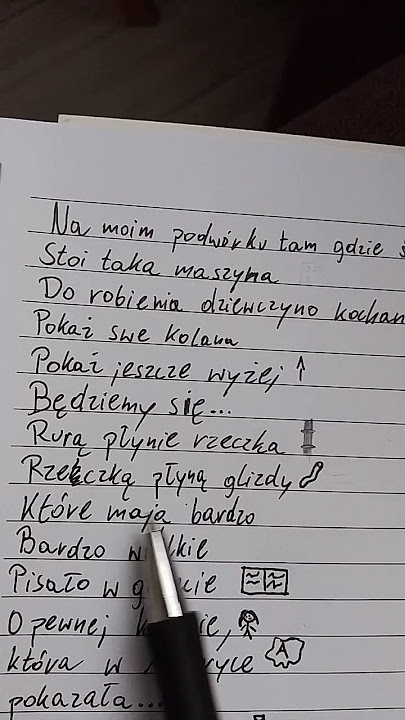 Na moim podwórku tam gdzie
Stoi taka maszyna
Do robienia dziewczyno kochan
Pokaż swe kolana
Pokaż jeszcze wyżej ↑
Będziemy się...
Rurą płynie rzeczka
Rzeczką płyną glizdy
Które mają bardzo
Bardzo wielkie
Pisało w
O pewnej
która w
A
pokazała...